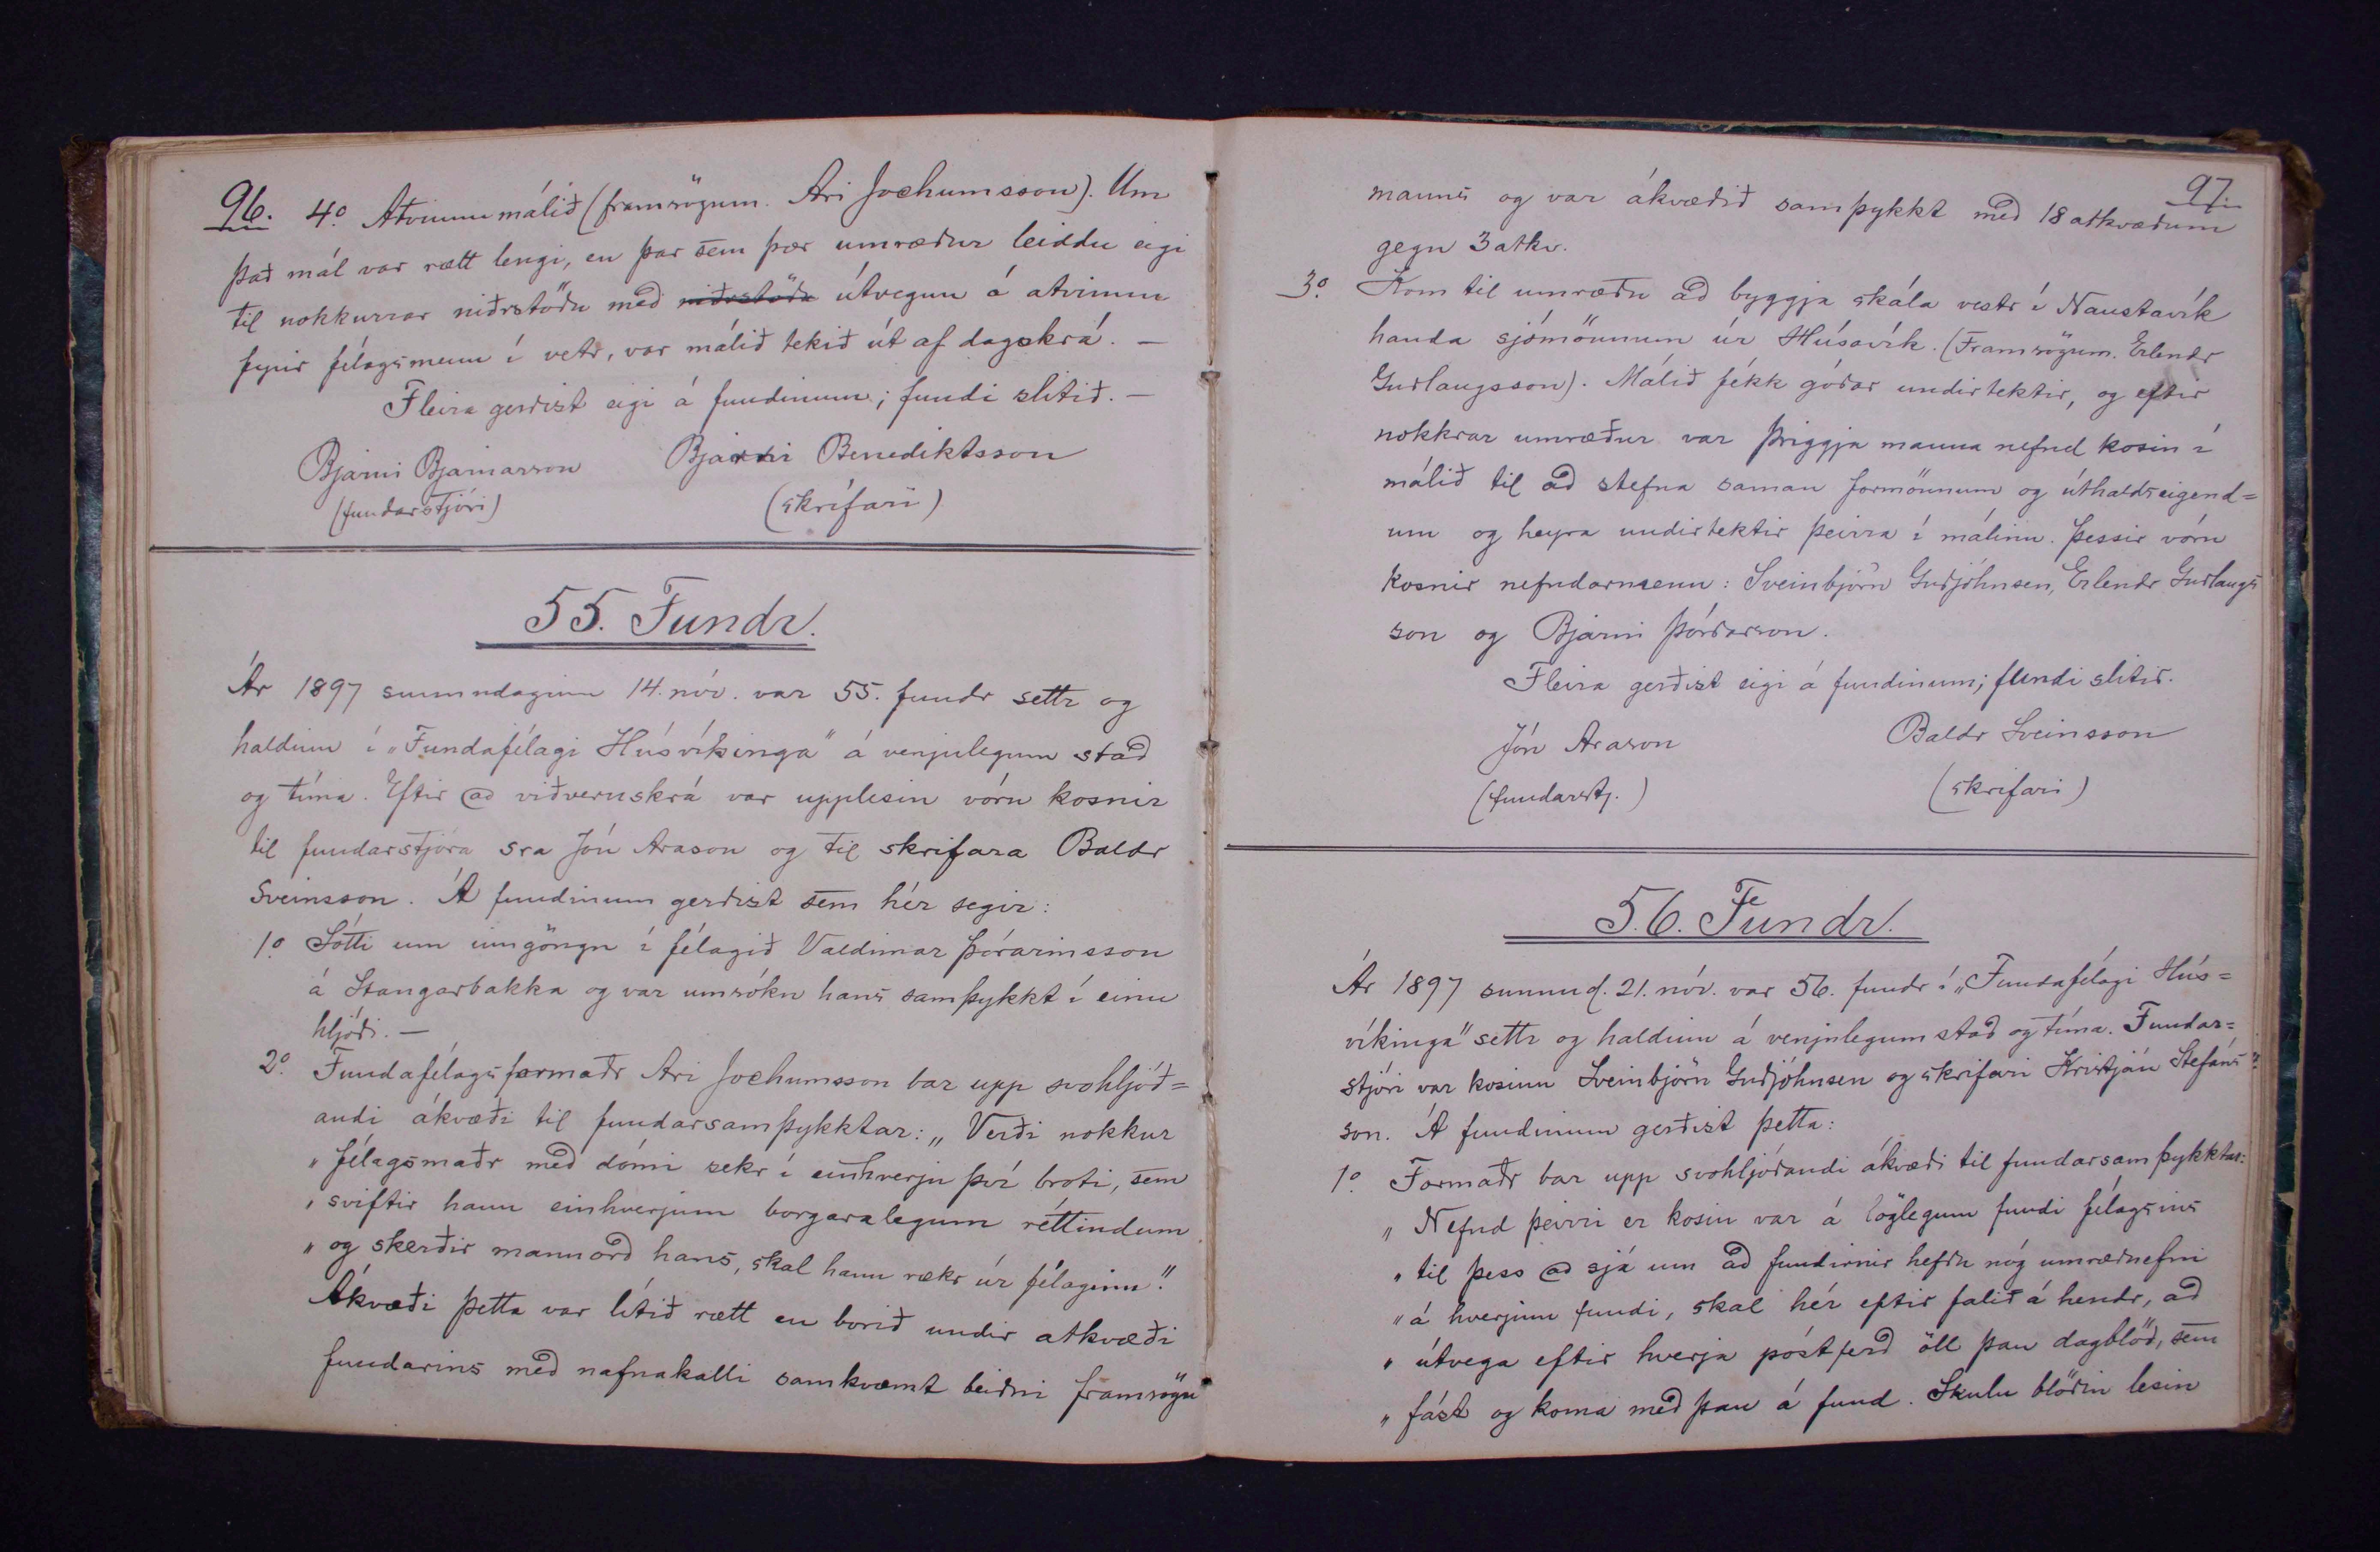 96. 4º Atvinnumálið (framsögum. Ari Jochumsson). Um
það mál var rætt lengi, en þar sem þær umræður leiddu eigi
til nokkurrar niðrstöðu með niðrstöðu útvegun á atvinnu
fyrir félagsmenn í vetr, var málið tekið út af dagskrá. —
Fleira gerðist eigi á fundinum; fundi slitið. —
Bjarni Bjarnarson Bjarni Benediktsson
(fundarstjóri) (skrifari)
55. Fundr.
Ár 1897 sunnudaginn 14. nóv. var 55. fundr settr og
haldinn í „Fundafélagi Húsvíkinga" á venjulegum stað
og tíma. Eftir að viðveruskrá var upplesin vóru kosnir
til fundarstjóra sra Jón Arason og til skrifara Baldr
Sveinsson. Á fundinum gerðist sem hér segir:
1º Sótti um inngöngu í félagið Valdimar Þórarinsson
á Stangarbakka og var umsókn hans samþykkt í einu
hljóði. —
2º. Fundafélagsformaðr Ari Jochumsson bar upp svohljóð=
andi ákvæði til fundarsamþykktar: „Verði nokkur
„ félagsmaðr með dómi sekr í einhverju því broti, sem
„ sviftir hann einhverjum borgaralegum réttindum
„ og skerðir mannorð hans, skal hann rækr úr félaginu".
Ákvæði þetta var lítið rætt en borið undir atkvæði
fundarins með nafnakalli samkvæmt beiðni framsögu
97.
manns og var ákvæðið samþykkt með 18 atkvæðum
gegn 3 atkv.
3º. Kom til umræðu að byggja skála vestr í Naustavík
handa sjómönnum úr Húsavík. (Framsögum. Erlendr
Guðlaugsson). Málið fékk góðar undirtektir, og eftir
nokkrar umræður var þriggja manna nefnd kosin í
málið til að stefna saman formönnum og úthaldseigend=
um og heyra undirtektir þeirra í málinu. Þessir vóru
kosnir nefndarmenn: Sveinbjörn Guðjóhnsen, Erlendr Guðlaugs
son og Bjarni Þórðarson.
Fleira gerðist eigi á fundinum; fundi slitið.
Jón Arason Baldr Sveinsson
(fundarstj.) (skrifari)
56. Fundr.
Ár 1897 sunnud. 21. nóv. var 56. fundr í „Fundafélagi Hús=
víkinga" settr og haldinn á venjulegum stað og tíma. Fundar=
stjóri var kosinn Sveinbjörn Guðjóhnsen og skrifari Kristján Stefáns=
son. Á fundinum gerðist þetta:
1º. Formaðr bar upp svohljóðandi ákvæði til fundarsamþykktar:
„ Nefnd þeirri er kosin var á löglegum fundi félagsins
„ til þess að sjá um að fundirnir hefðu nóg umræðuefni
„ á hverjum fundi, skal hér eftir falið á hendr, að
„ útvega eftir hverja póstferð öll þau dagblöð, sem
„ fást og koma með þau á fund. Skulu blöðin lesin